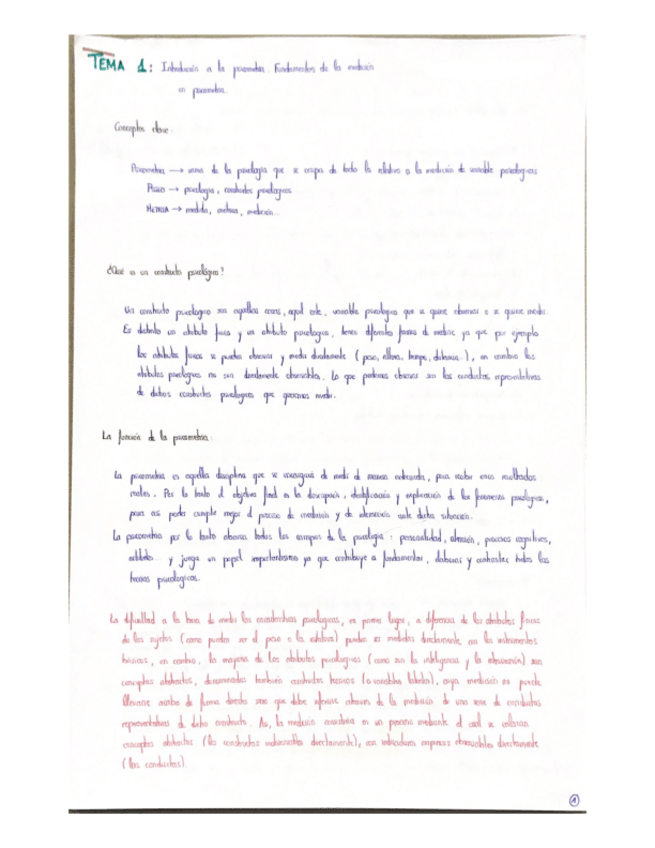 TEMA 1: Introducción a la psicometría. Fundamentos de la medición
en psicometría.
Conceptos clave:
Psicometría → rama de la psicología que se ocupa de todo lo relativo a la medición de variable psicológicas
PSICO → psicología, constructos psicológicos
METRIA → medida, métrica, medición...
¿Qué es un constructo psicológico?
Un constructo psicológico son aquellas cosas, aquel ente, variable psicológica que se quiere observar o se quiere medir.
Es distinto un atributo físico y un atributo psicológico, tienen diferentes formas de medirse ya que por ejemplo
los atributos físicos se pueden observar y medir directamente (peso, altura, tiempo, distancia...), en cambio los
atributos psicológicos no son directamente observables. Lo que podemos observar son las conductas representativas
de dichos constructos psicológicos que queremos medir.
La función de la psicometría:
La psicometría es aquella disciplina que se encarga de medir de manera adecuada, para recibir unos resultados
reales. Por lo tanto el objetivo final es la descripción, clasificación y explicación de los fenómenos psicológicos,
para así poder cumplir mejor el proceso de medición y de intervención ante dicha situación.
La psicometría por lo tanto abarca todos los campos de la psicología: personalidad, atención, procesos cognitivos,
actitudes... y juega un papel importantísimo ya que contribuye a fundamentar, elaborar y contrastar todas las
teorías psicológicas.
La dificultad a la hora de medir las características psicológicas, en primer lugar, a diferencia de los atributos físicos
de los sujetos (como pueden ser el peso o la estatura) pueden ser medidos directamente con los instrumentos
básicos, en cambio, la mayoría de los atributos psicológicos (como son la inteligencia y la extraversión) son
conceptos abstractos, denominados también constructos teóricos (o variables latentes), cuya medición no puede
llevarse acabo de forma directa sino que debe inferirse atraves de la medición de una serie de conductas
representativas de dicho constructo. Así, la medición consistiría en un proceso mediante el cual se enlazan
conceptos abstractos (los constructos inobservables directamente), con indicadores empíricos observables directamente
(las conductas).
1